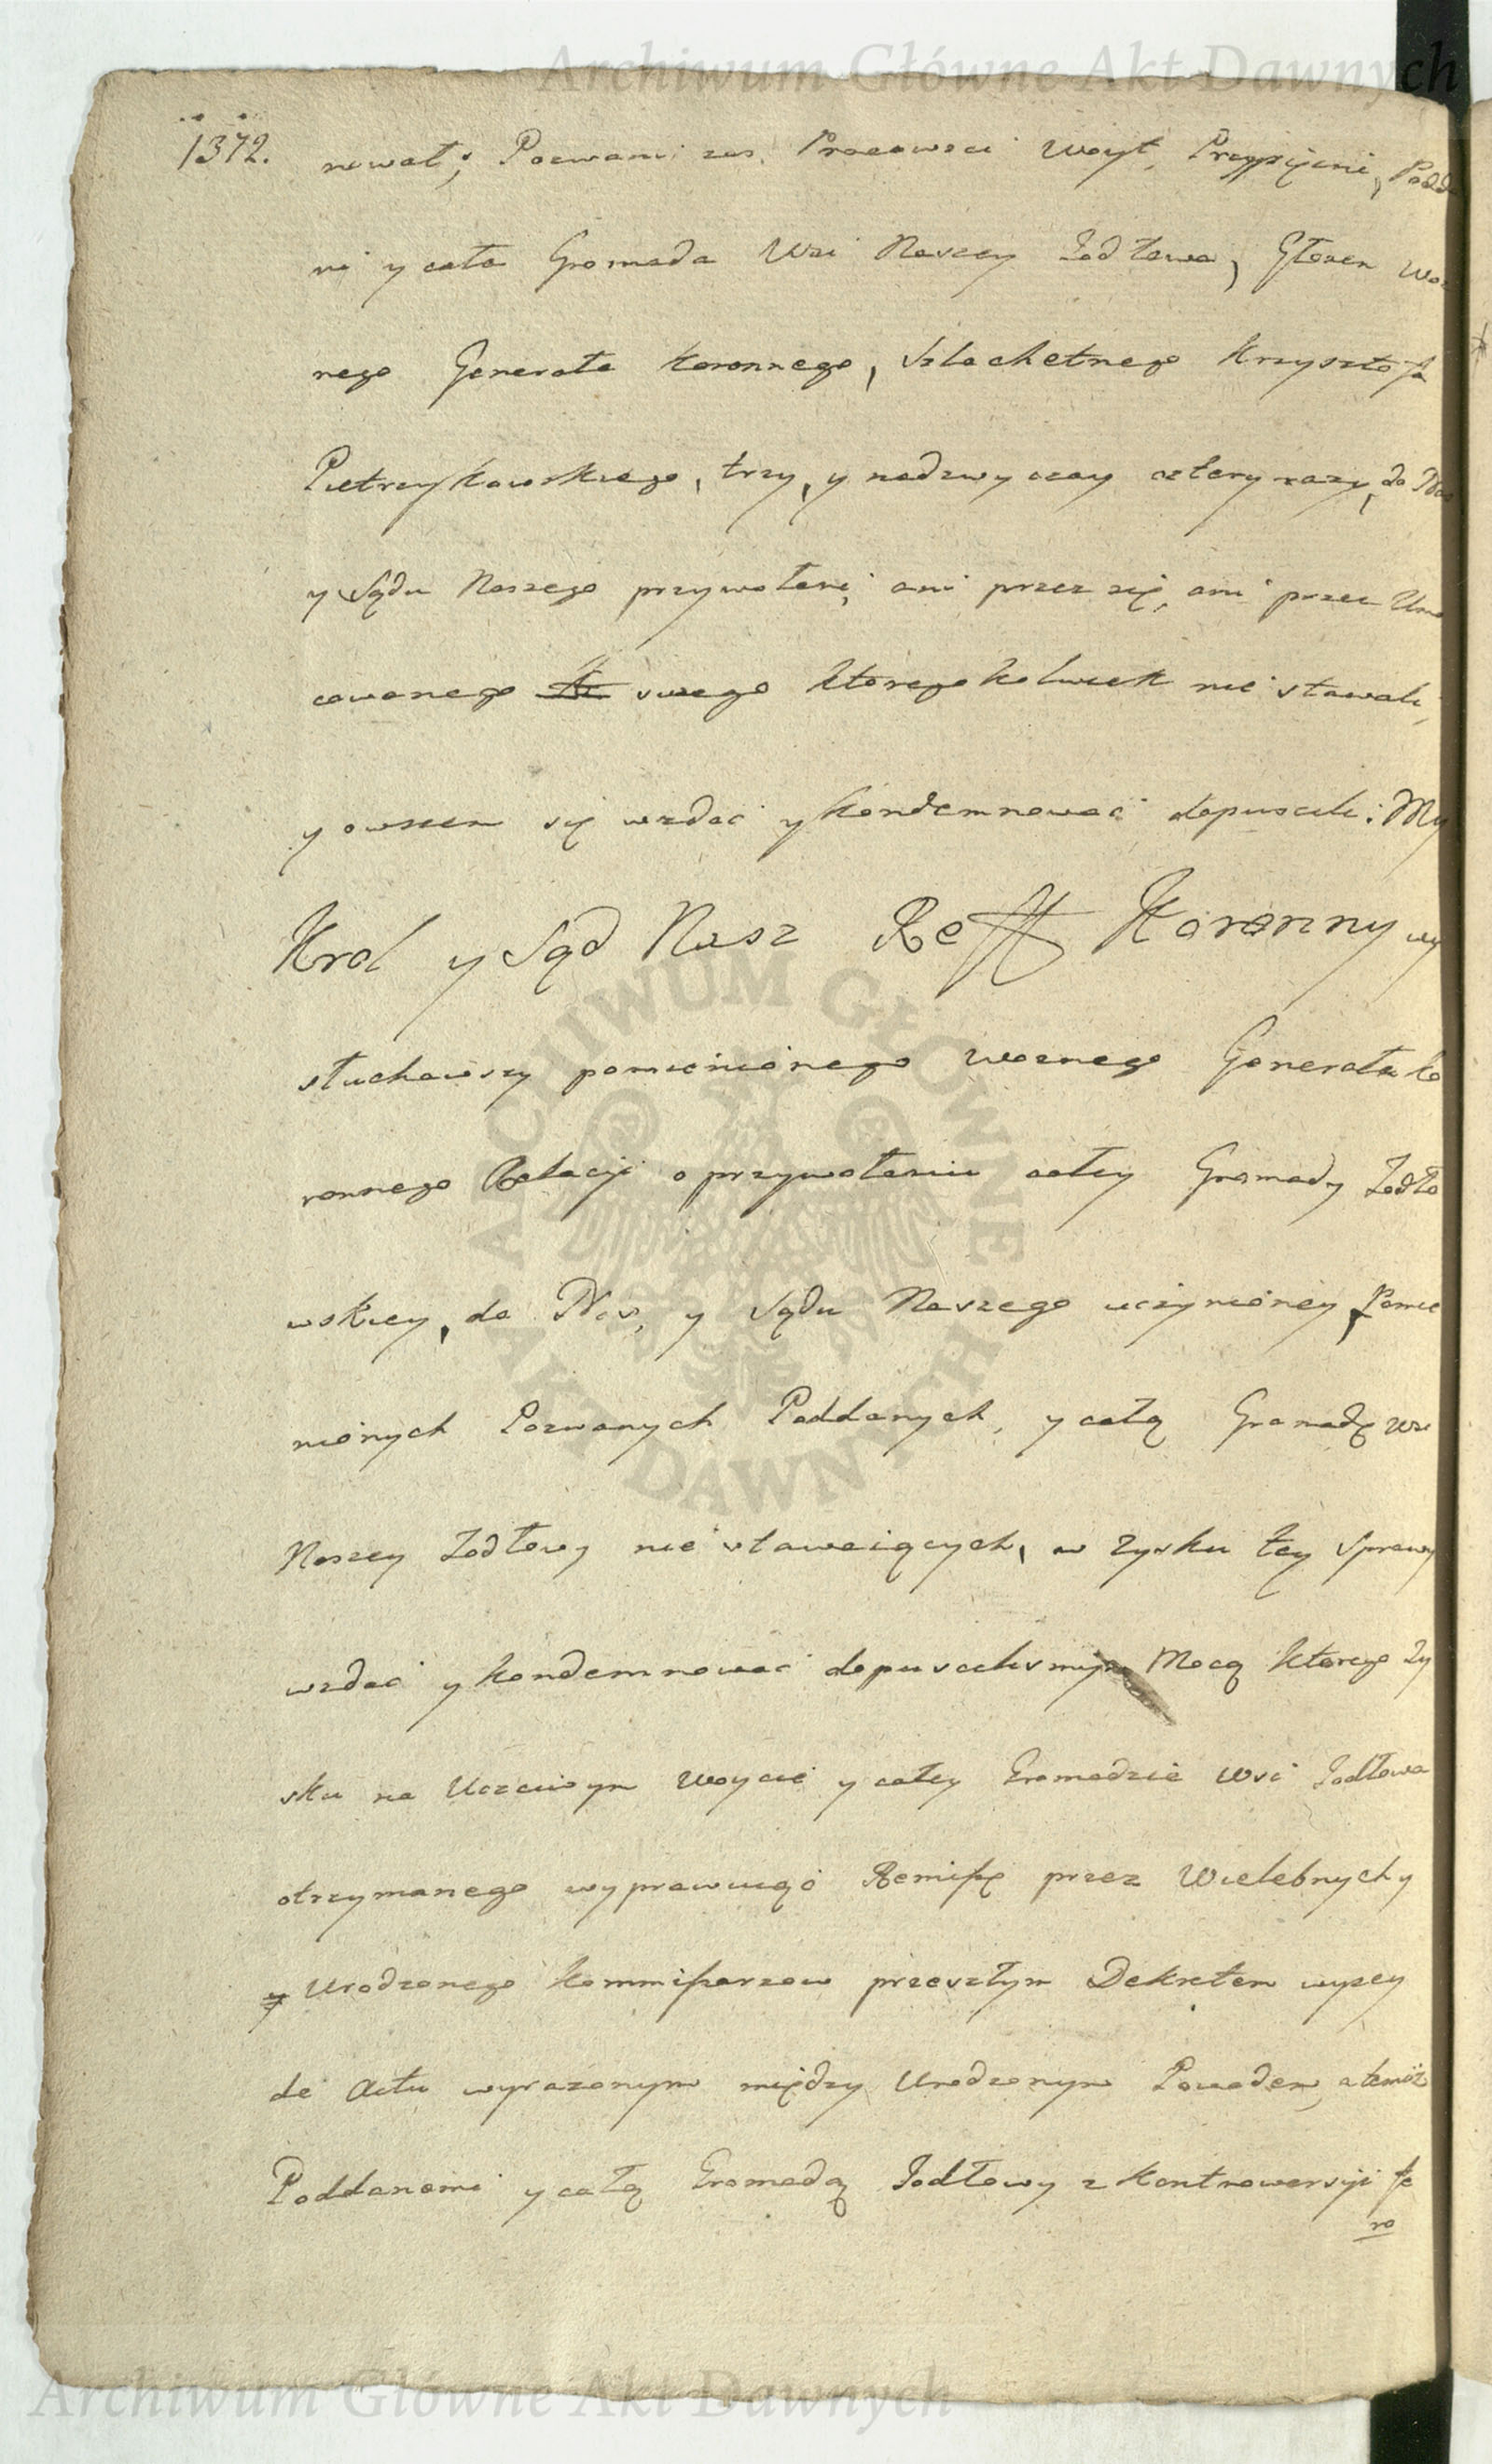 Archiwum Główne Akt Dawnych
1372.
nował; Pozwani zas, Pracowici Woyt, Przysięzni, Podda
ni y cała Gromada Wsi Naszey Jodłowa, Głosem Woz
nego Generała Koronnego, Szlachetnego Krzysztofa
Pietrzykowskiego, trzy, y nadzwyczay cztery razy, do Nas
y Sądu Naszego przywołani, ani przez się, ani przez Umo
cowanego swego ktoregokolwiek nie stawali,
y owszem się wzdać y kondemnować dopuscili: My
Krol y Sąd Nasz Reff Koronny wy
słuchawszy pomienionego woznego Generała Ko
ronnego Relacyi o przywołaniu całey Gromady Jodło
wskiey, do Nas, y Sądu Naszego uczynioney, Pomie
nionych Pozwanych Poddanych, y całą Gromadę wsi
Naszey Jodłowy nie stawaiących, w Zysku tey Sprawy
wzdać y kondemnować dopuscilismy Mocą ktorego Zy
sku na Uczciwym Woycie y całey Gromadzie Wsi Jodłowa
otrzymanego wyprawuiąc Remissę przez Wielebnych y
y Urodzonego Kommissarzow przeszłym Dekretem wyzey
de Actu wyrazonym między Urodzonym Powodem, a temiż
Poddanemi y całą Gromadą Jodłowy z Kontrowersyi fo
ro
ARCHIWUM GŁÓWNE AKT DAWNYCH
Archiwum Główne Akt Dawnych